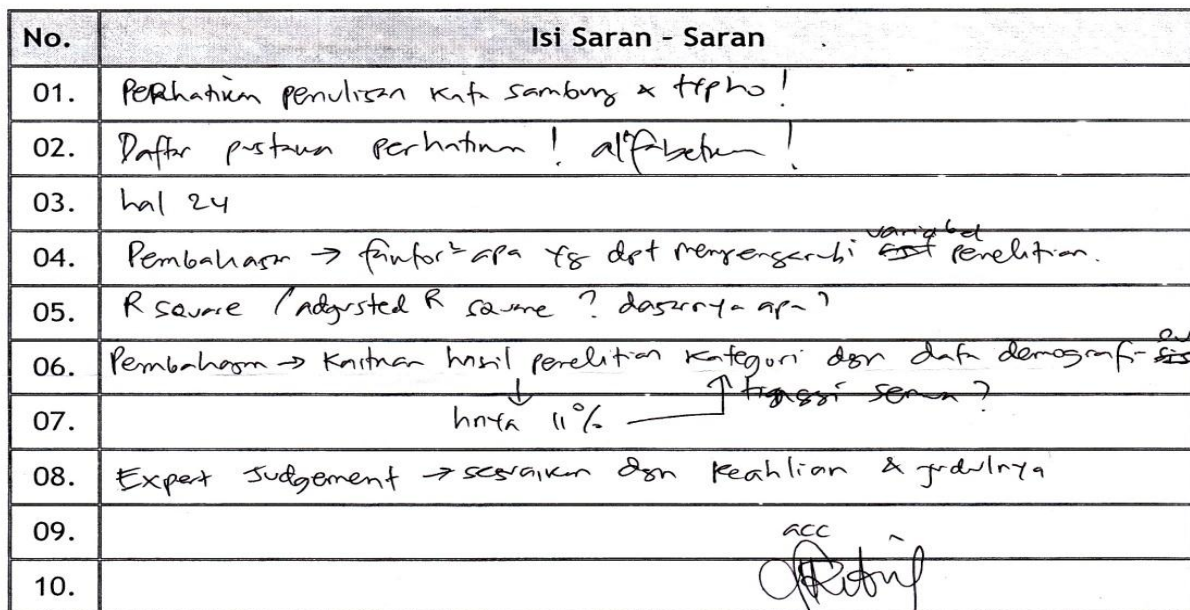 No. Isi Saran - Saran
01. Perhatikan penulisan kata sambung & typho!
02. Daftar pustaka perhatikan! alfabetum!
03. hal 24
04. Pembahasan → faktor² apa yg dpt mempengaruhi variabel penelitian.
05. R square / adjusted R square? dasarnya apa?
06. Pembahasan → Kaitkan hasil penelitian kategori dgn data demografi
07. hnya 11% tinggi semua?
08. Expert Judgement → sesuaikan dgn keahlian & judulnya
09. acc
10.